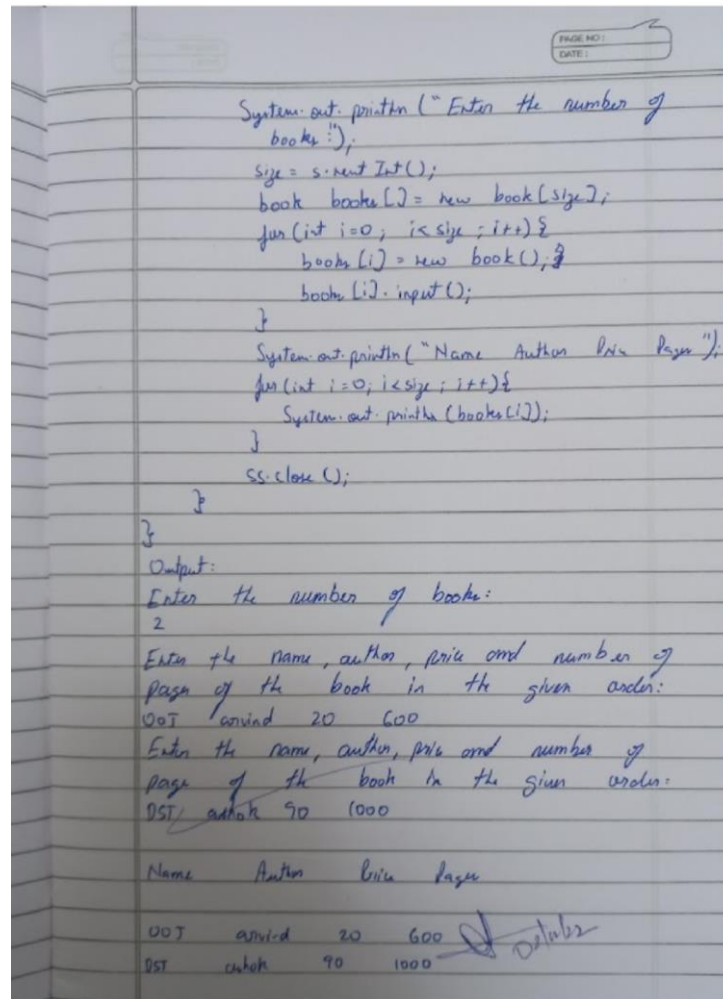 PAGE NO:
DATE:
System.out.println("Enter the number of
books:");
size = s.nextInt();
book books[] = new book[size];
for(int i=0; i<size; i++){
books[i] = new book();
books[i].input();
}
System.out.println("Name Author Price Pages");
for(int i=0; i<size; i++){
System.out.println(books[i]);
}
ss.close();
}
}
Output:
Enter the number of books:
2
Enter the name, author, price and number of
pages of the book in the given order:
OOJ arvind 20 600
Enter the name, author, price and number of
page of the book in the given order:
DST ashok 90 1000
Name Author Price Pages
OOJ arvind 20 600
DST ashok 90 1000